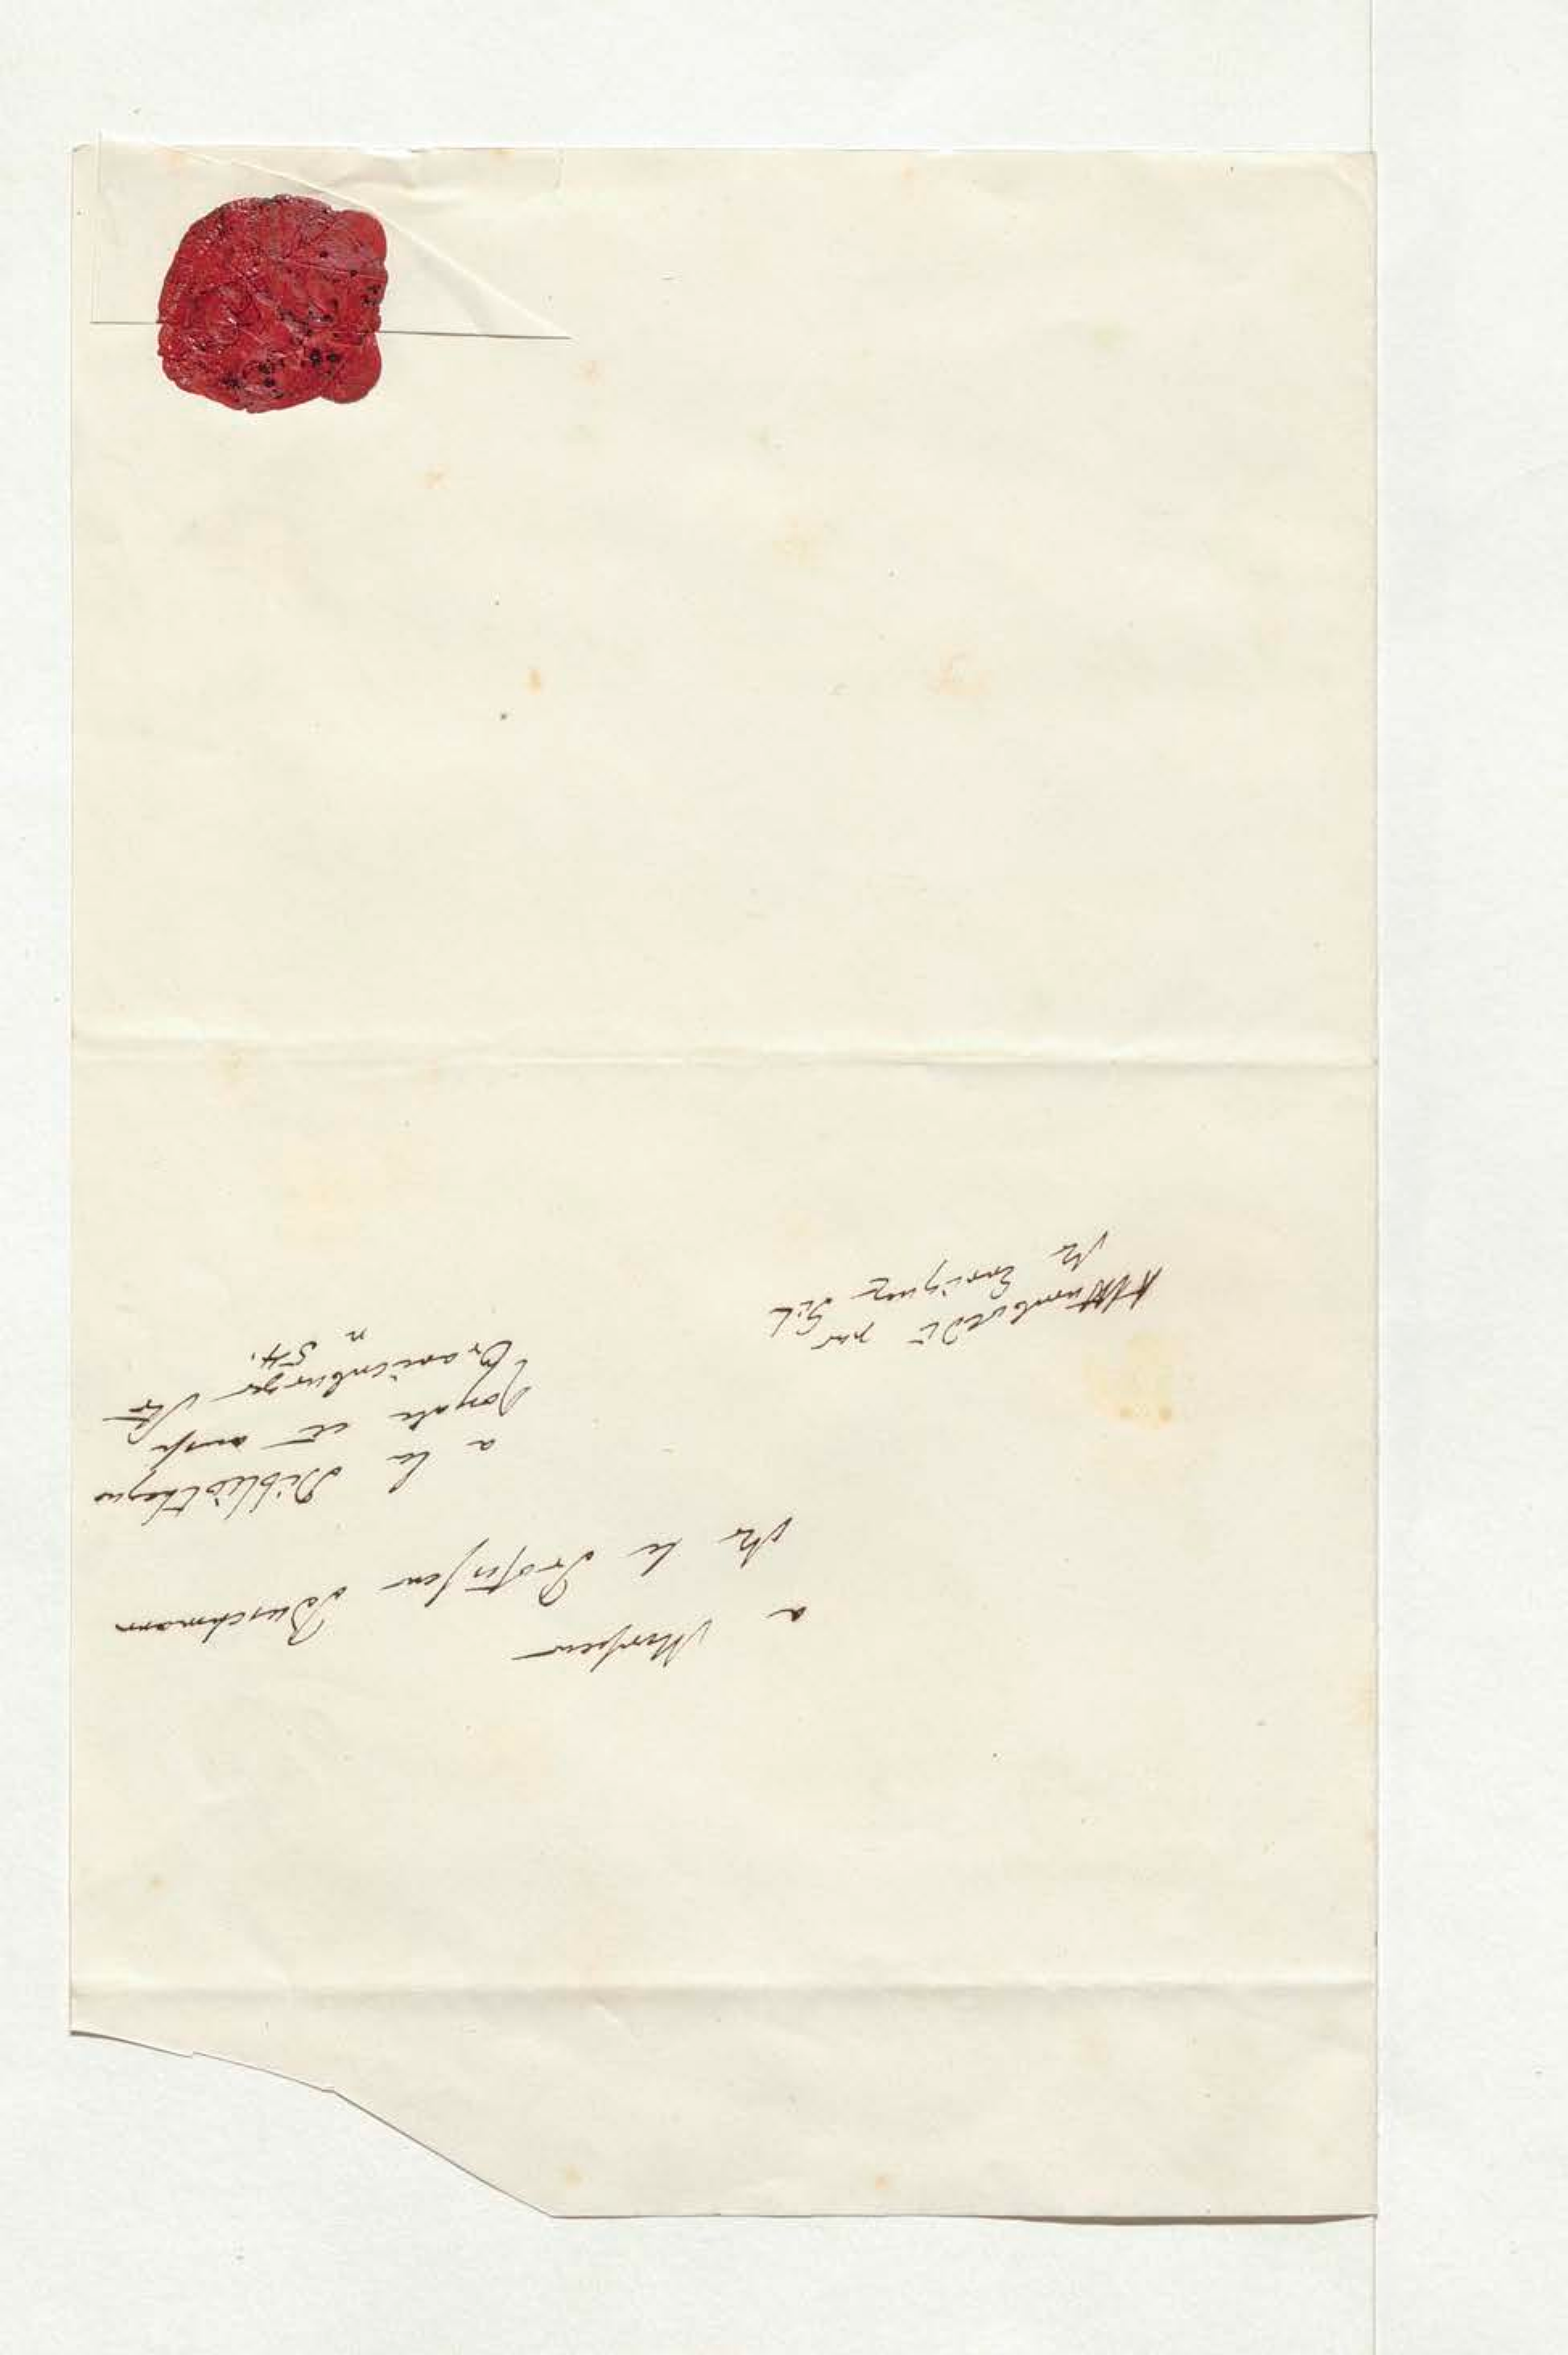 a Monsieur
Mr le Professeur Buschmann
a la Bibliotheque
Royale et aussi
Oranienburger Str
n 54.
AlHumboldt par
Mr Enrique Gil